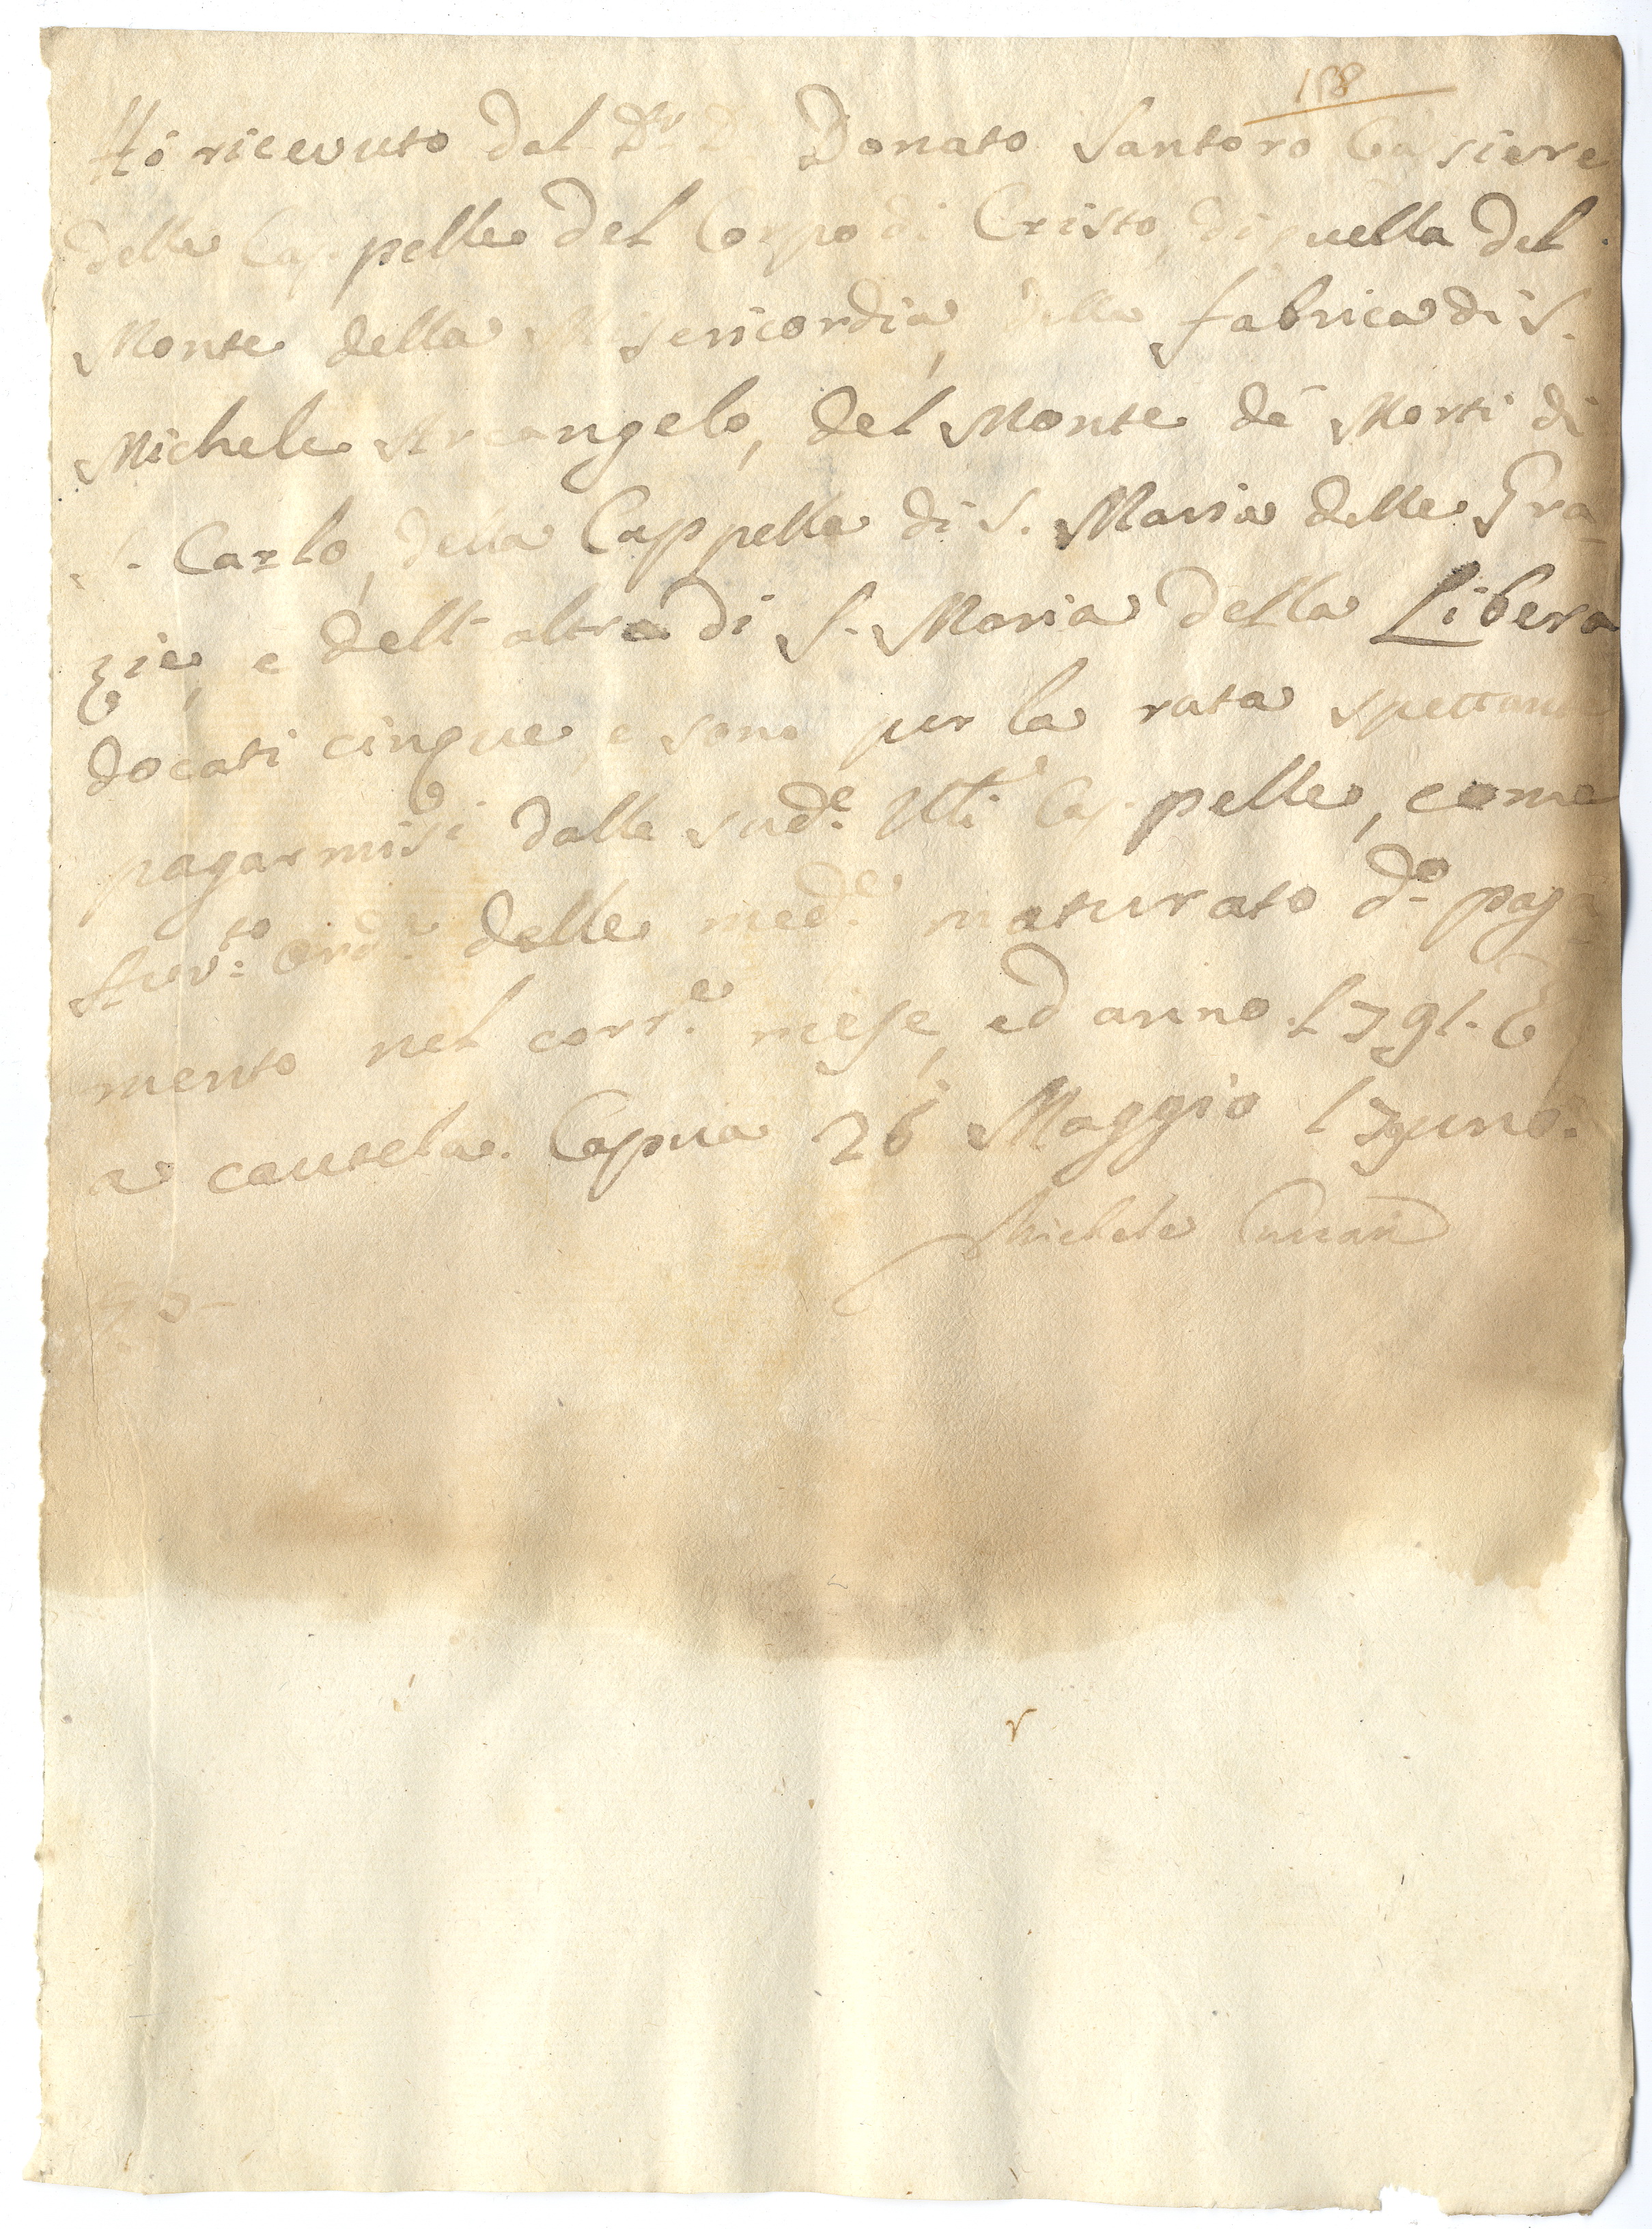 158
Hò ricevuto dal D.r D. Donato Santoro Casiere
delle Cappelle del Corpo di Cristo, di quella del
Monte della Misericordia, della fabrica di S.
Michele Arcangelo, del Monte dè Morti di
S. Carlo, della Cappella di S. Maria delle Gra-
zie, e dell'altra di S. Maria della Libera
docati cinque, e sono per la rata spettante
pagarmisi dalle sud.e Cappelle, come
delle med.e maturato d.o paga-
mento nel corr.e mese, ed anno 1791. E
a cautela. Capua 26 Maggio 179uno.
Michele